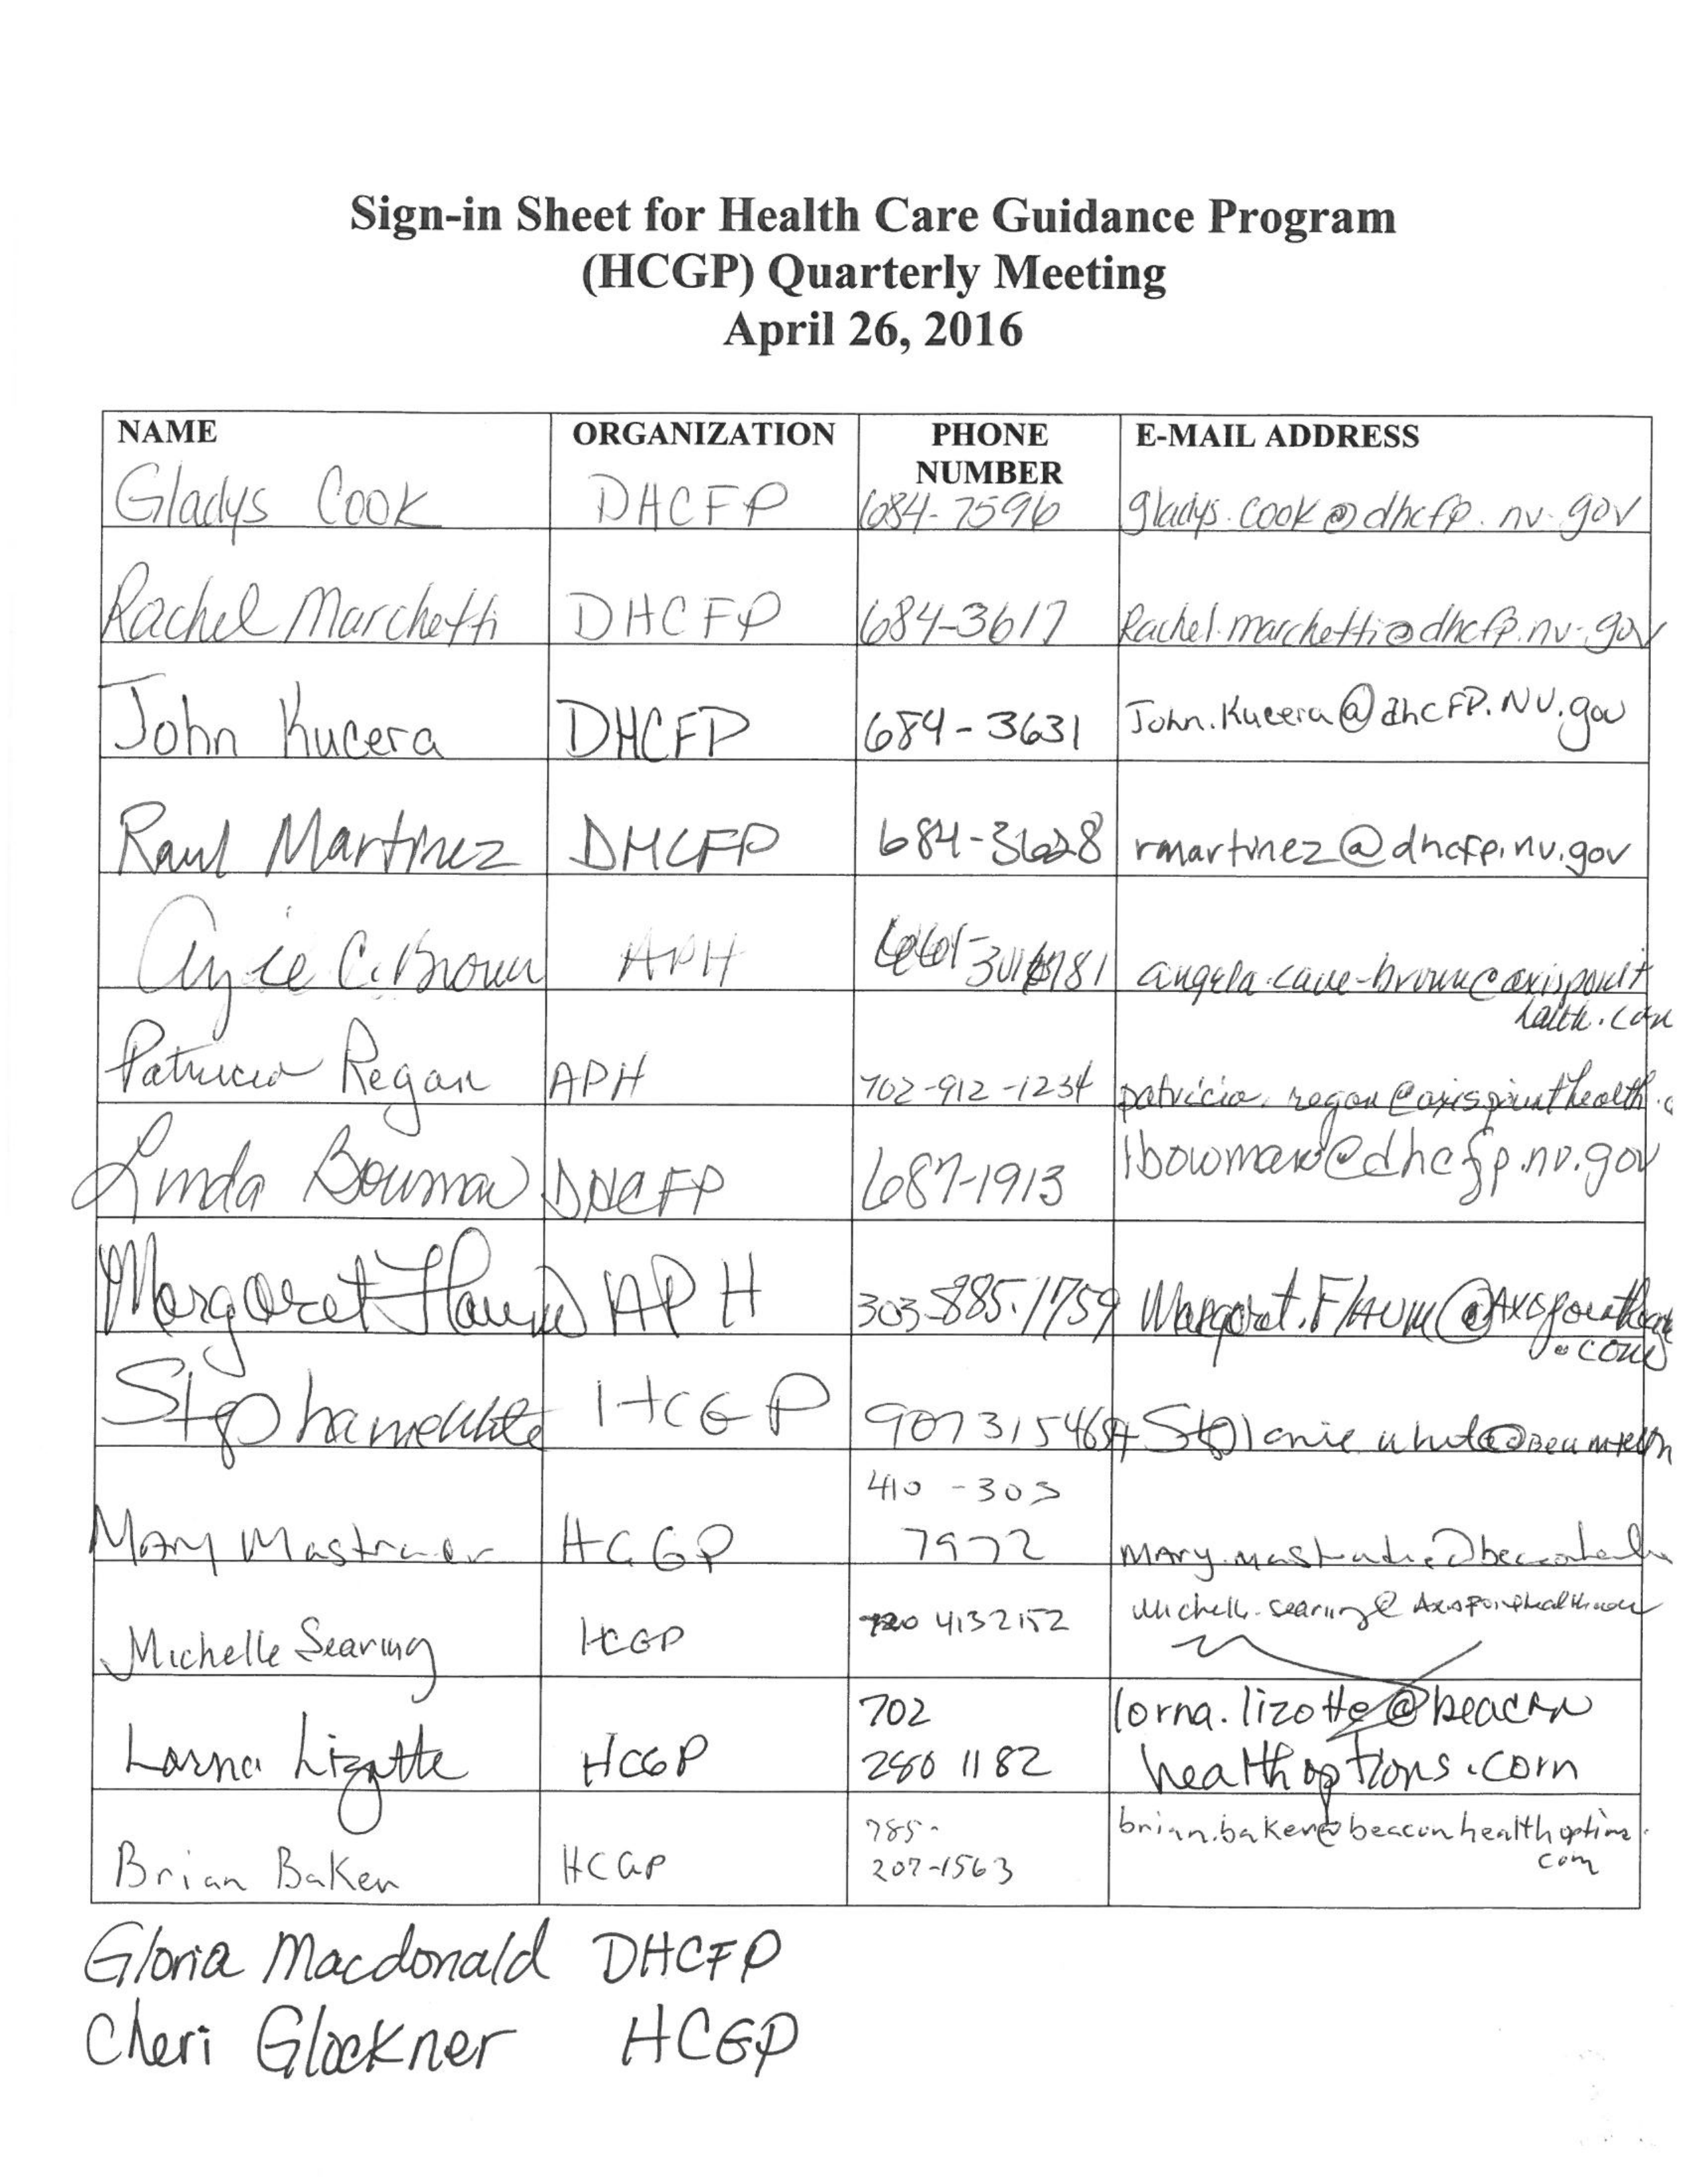 Sign-in Sheet for Health Care Guidance Program
(HCGP) Quarterly Meeting
April 26, 2016
NAME ORGANIZATION PHONE NUMBER E-MAIL ADDRESS
Gladys Cook DHCFP 684-7596 gladys.cook@dhcfp.nv.gov
Rachel Marchetti DHCFP 684-3617 Rachel.marchetti@dhcfp.nv.gov
John Kucera DHCFP 684-3631 John.Kucera@dhcFP.NV.gov
Raul Martinez DHCFP 684-3628 rmartinez@dhcfp.nv.gov
Angie C. Brown APH angela.cave-brown@axispoint
health.com
Patricia Regan APH 702-912-1234 patricia.regan@axispointhealth.c
Linda Bowman DHCFP 687-1913 lbowman@dhcfp.nv.gov
Margaret Flaum APH 303-885-1759 Margaret.Flaum@Axispointhealth
.com
Stephanie White HCGP
410-303
Mary HCGP 7972
Michelle Searing HCGP 720 4132152 Michelle.searing@Axispointhealth.com
702 lorna.lizotte@beacon
Lorna Lizotte HCGP 280 1182 healthoptions.com
785- brian.baker@beaconhealthoptions.
com
Brian Baker HCGP 207-1563
Gloria Macdonald DHCFP
Cheri Glockner HCGP